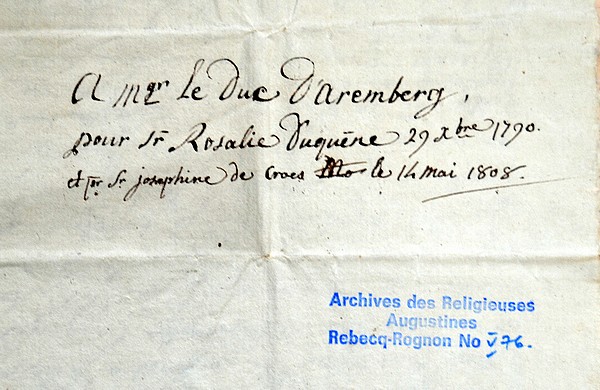 A mgr le Duc D'aremberg,
pour sr Rosalie Duquêne 29 xbre 1790.
et pr Sr josephine de Croes le 14 mai 1808.
Archives des Religieuses
Augustines
Rebecq-Rognon No V 76.